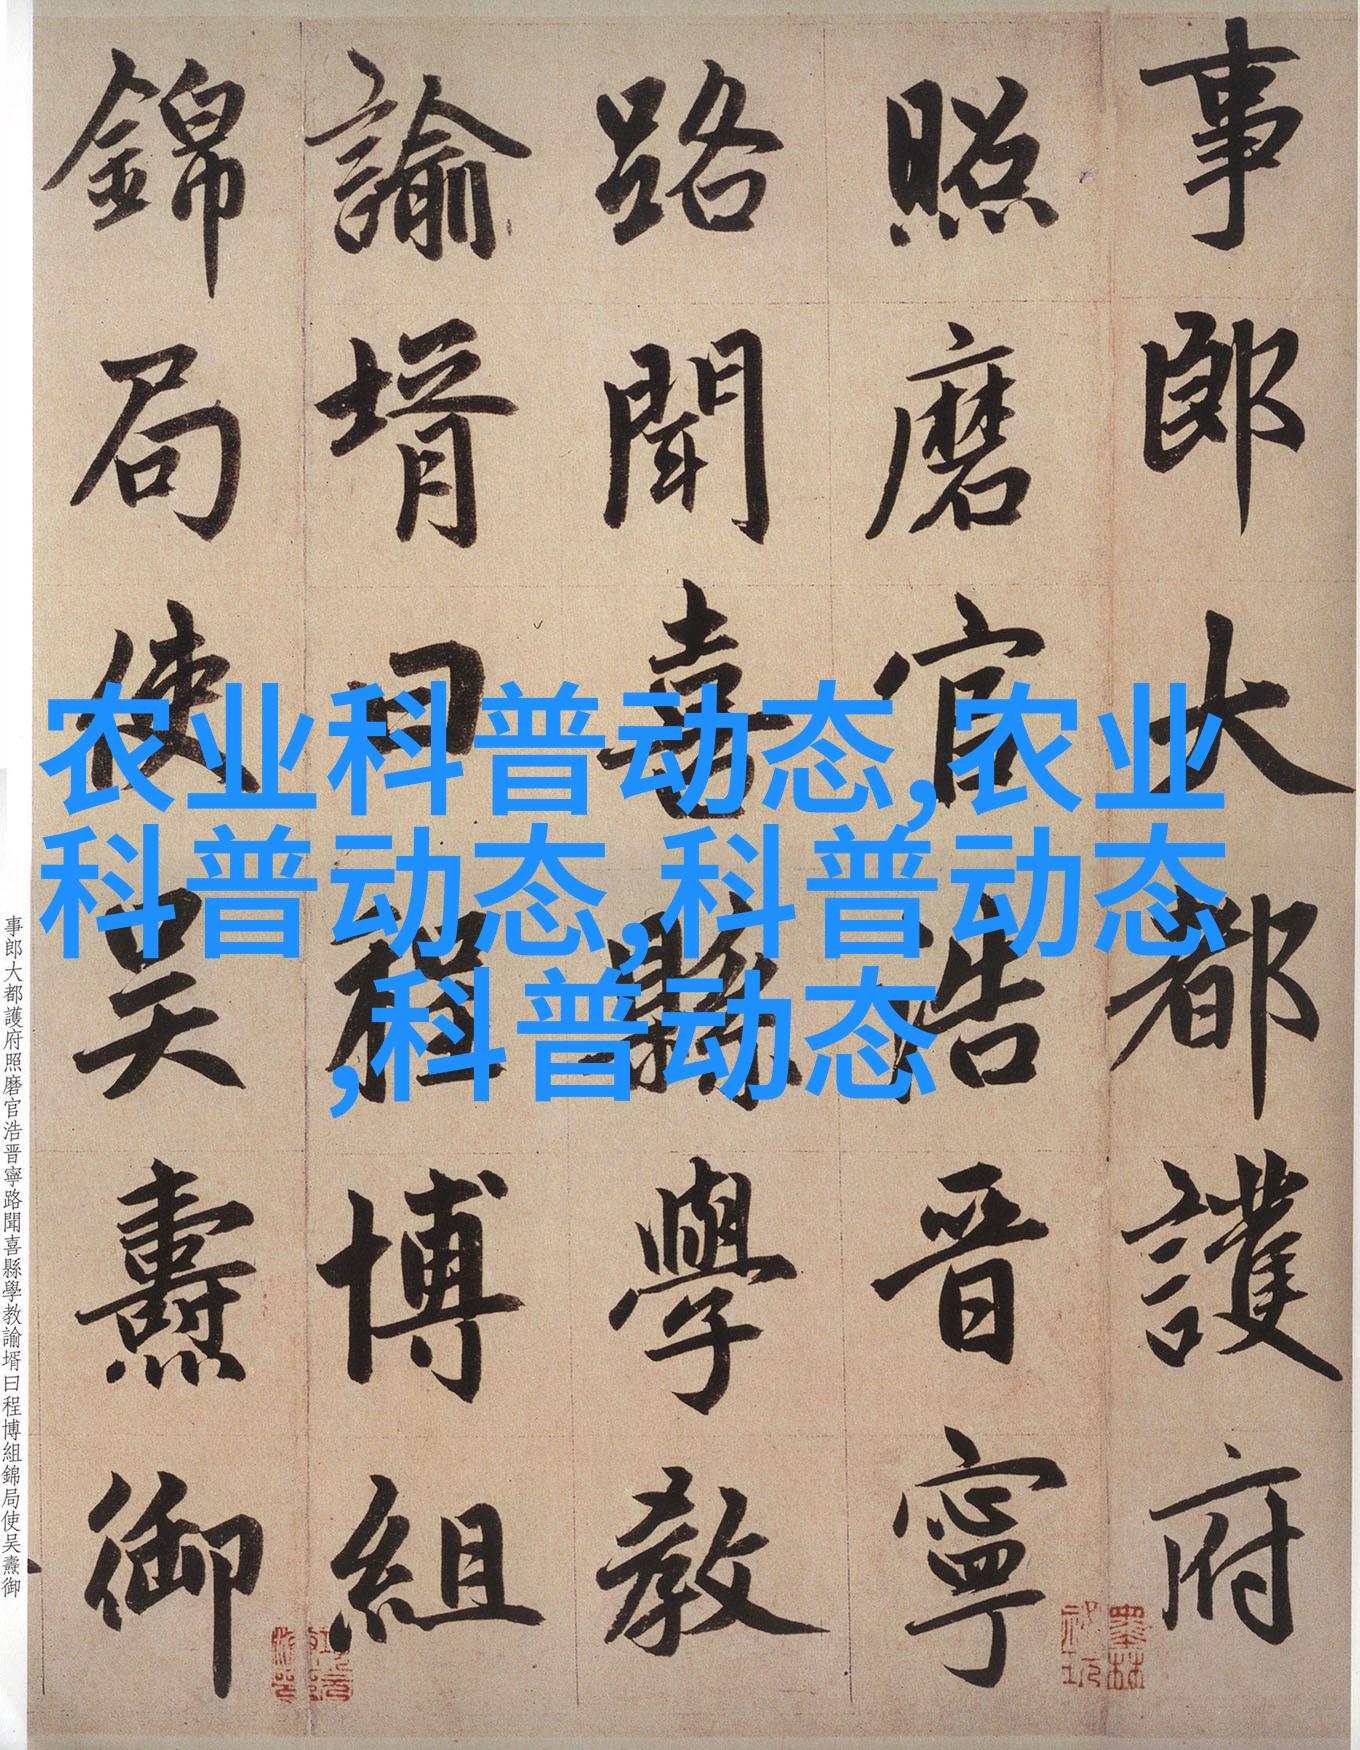 事郎大都護府
照磨官浩晋寧
路聞喜縣學教
諭壻曰程博組
錦局使吴燾御
农业科普动态,农业
科普动态,科普动态
,科普动态
事郎大都護府照磨官浩晋寧路聞喜縣學教諭壻曰程博組錦局使吴燾御